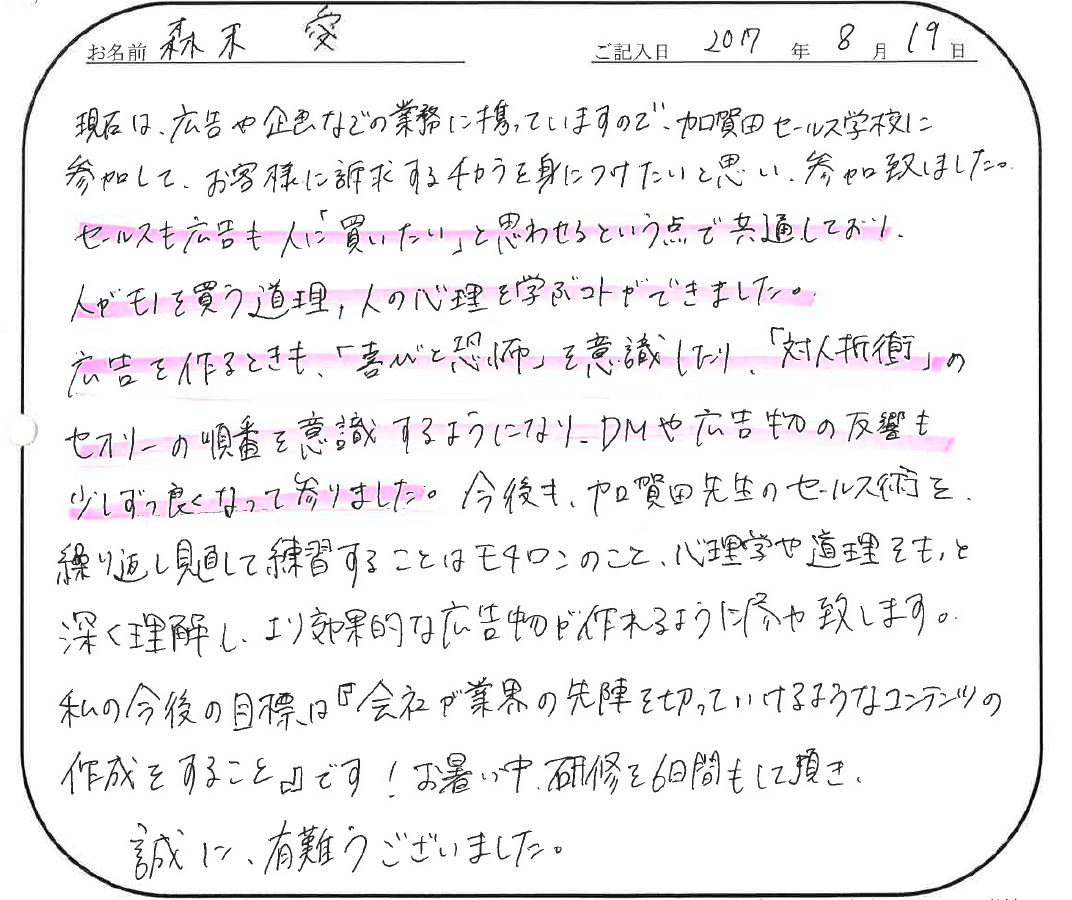 お名前 森末 愛 ご記入日 2017 年 8 月 19 日
現在は、広告や企画などの業務に携っていますので、加賀田セールス学校に
参加して、お客様に訴求するチカラを身につけたいと思い、参加致しました。
セールスも広告も人に「買いたい」と思わせるという点で共通しており、
人がモノを買う道理、人の心理を学ぶコトができました。
広告を作るときも、「喜びと恐怖」を意識したり、「対人折衝」の
セオリーの順番を意識するようになり、DMや広告物の反響も
少しずつ良くなって参りました。今後も、加賀田先生のセールス術を、
繰り返し見直して練習することはモチロンのこと、心理学や道理をもっと
深く理解し、より効果的な広告物が作れるように 致します。
私の今後の目標は『会社が業界の先陣を切っていけるようなコンテンツの
作成をすること』です！お暑い中、研修を6日間もして頂き、
誠に、有難うございました。